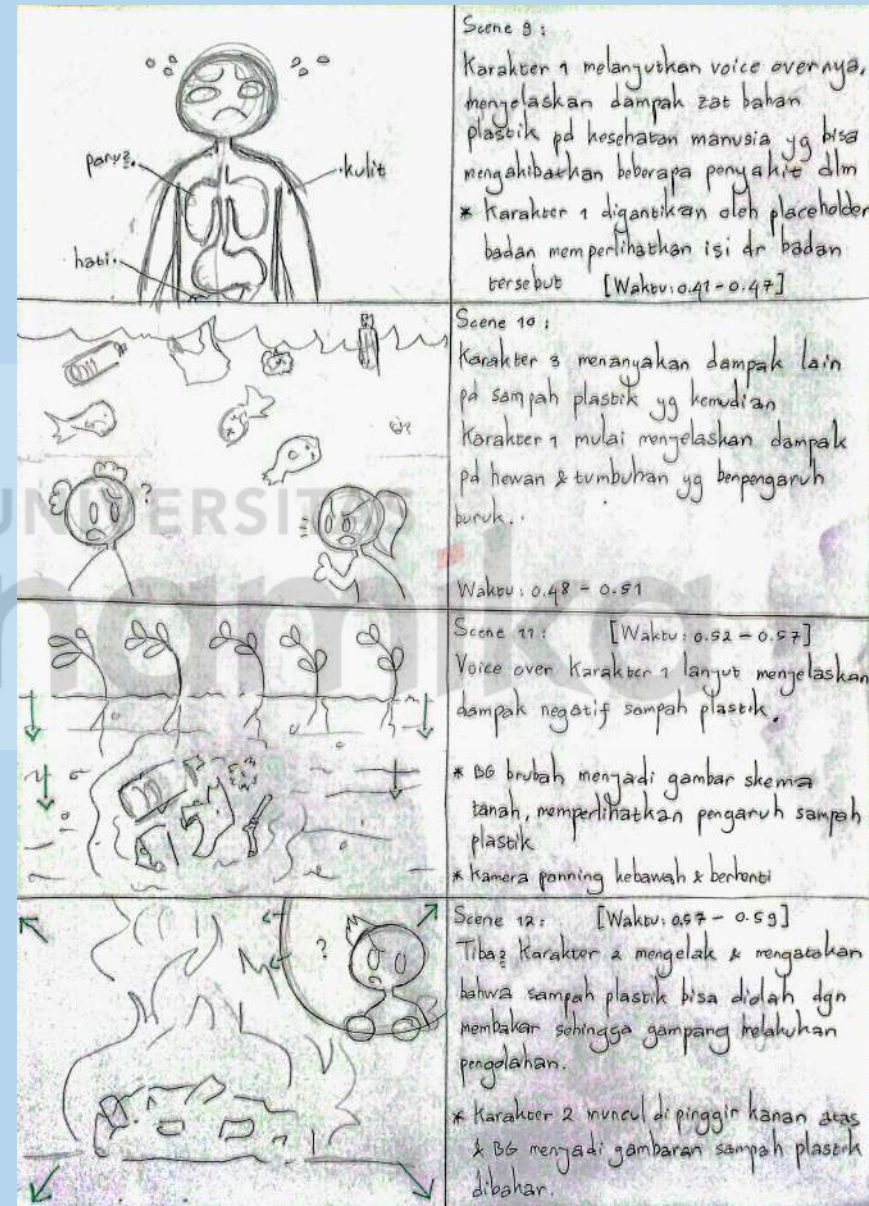 Scene 9 :
Karakter 1 melanjutkan voice overnya,
menjelaskan dampak zat bahan
plastik pd kesehatan manusia yg bisa
mengakibatkan beberapa penyakit dlm
* Karakter 1 digantikan oleh placeholder
badan memperlihatkan isi dr badan
tersebut [Waktu: 0.41 - 0.47]
paru2.
kulit
hati.
Scene 10 :
Karakter 3 menanyakan dampak lain
pd sampah plastik yg kemudian
Karakter 1 mulai menjelaskan dampak
pd hewan & tumbuhan yg benpengaruh
buruk.
Waktu : 0.48 - 0.51
?
UNIVERSITAS
namika
Scene 11 : [Waktu : 0.52 - 0.57]
Voice over Karakter 1 lanjut menjelaskan
dampak negatif sampah plastik.
* BG brubah menjadi gambar skema
tanah, memperlihatkan pengaruh sampah
plastik
* Kamera panning kebawah & berhenti
Scene 12 : [Waktu : 0.57 - 0.59]
Tiba2 Karakter 2 mengelak & mengatakan
bahwa sampah plastik bisa diolah dgn
membakar sehingga gampang melakukan
pengolahan.
* Karakter 2 muncul di pinggir kanan atas
& BG menjadi gambaran sampah plastik
dibakar.
?